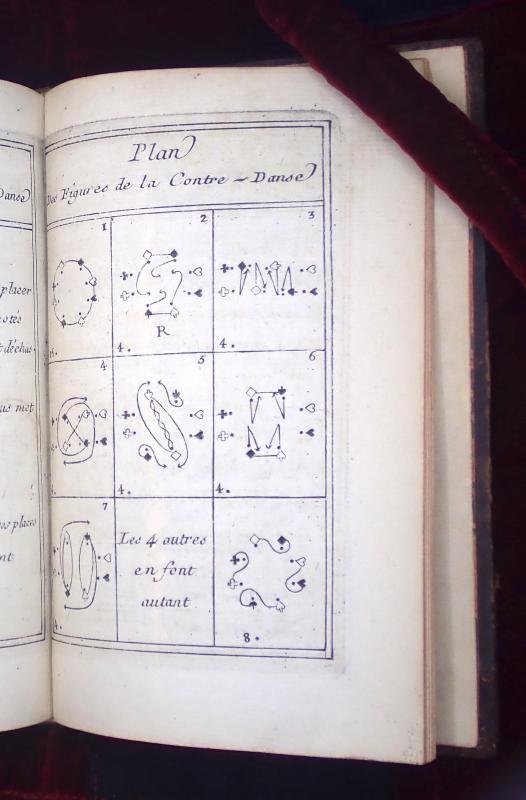 Plan
Des Figures de la Contre - Danse
1
2
3
R
4.
4.
4
5
6
4.
4.
7
Les 4 autres
en font
autant
8.
Danse
placer
otés
t déchas.
us met
os places
nt